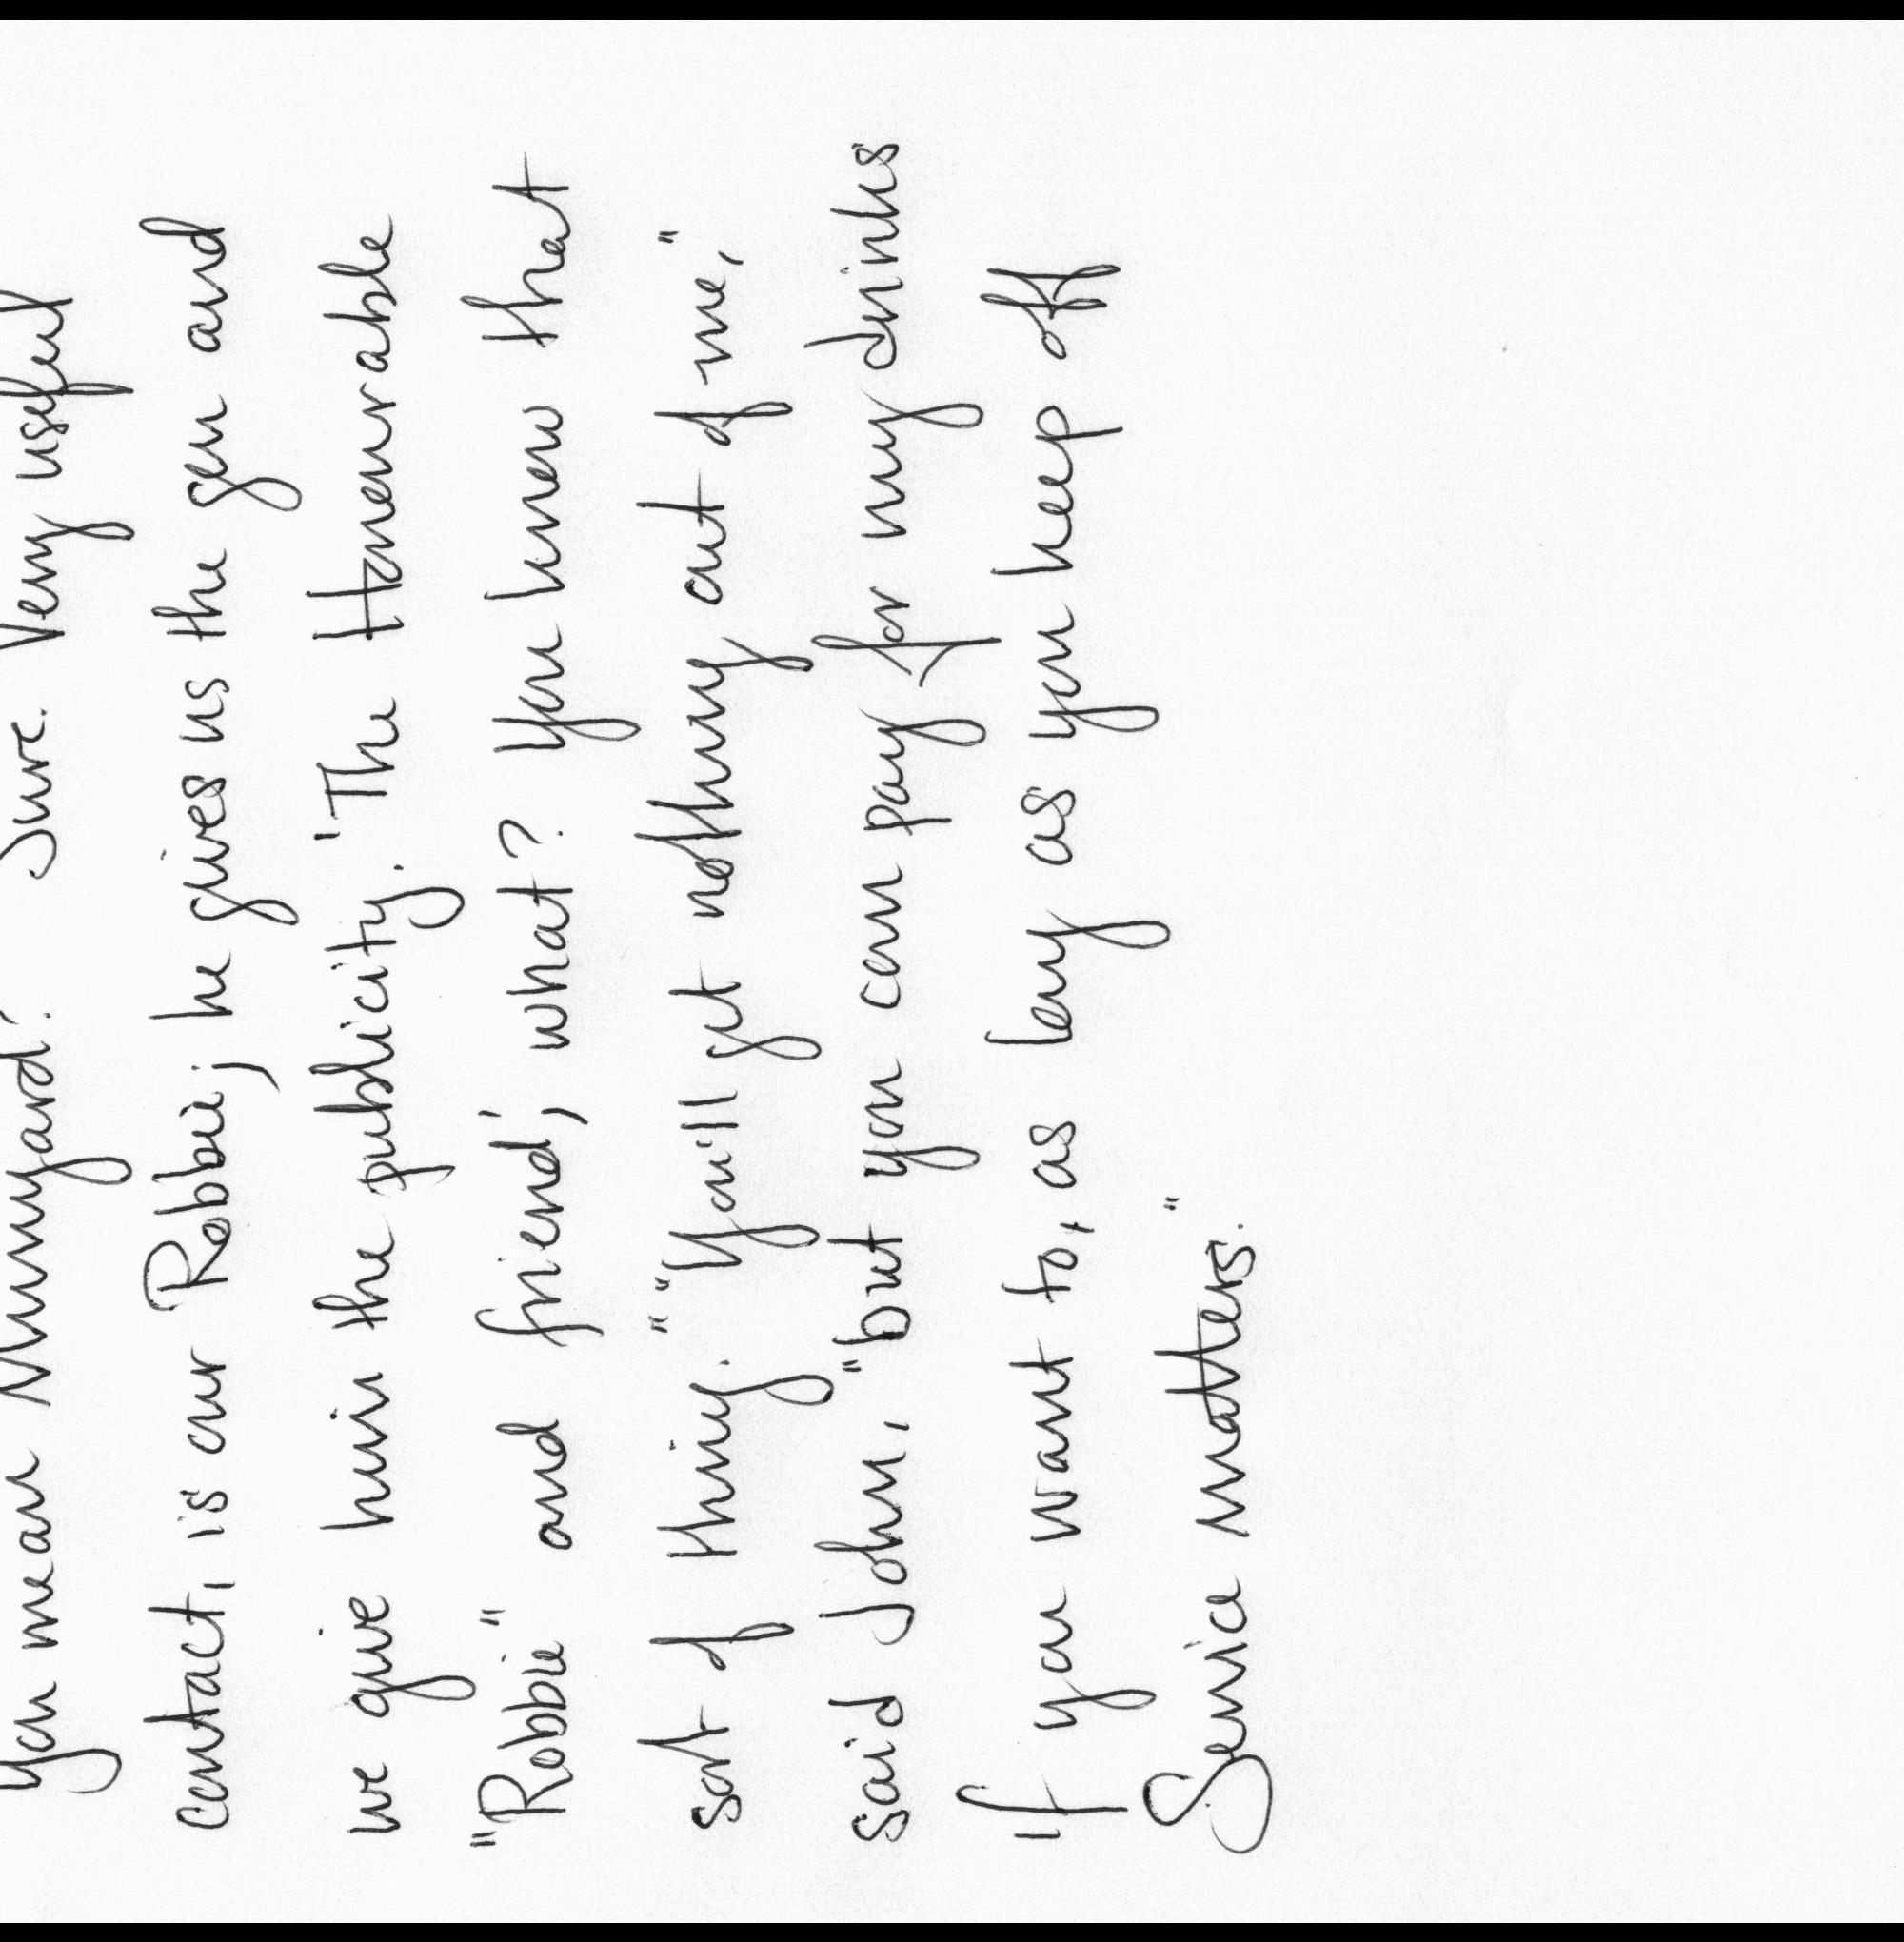 You mean Munyard? Sure. Very useful
contact, is our Robbie; he gives us the gen and
we give him the publicity. 'The Honourable
"Robbie" and friend', what? You know that
sort of thing." "You'll get nothing out of me,"
said John, "but you can pay for my drinks
if you want to, as long as you keep off
Service matters."